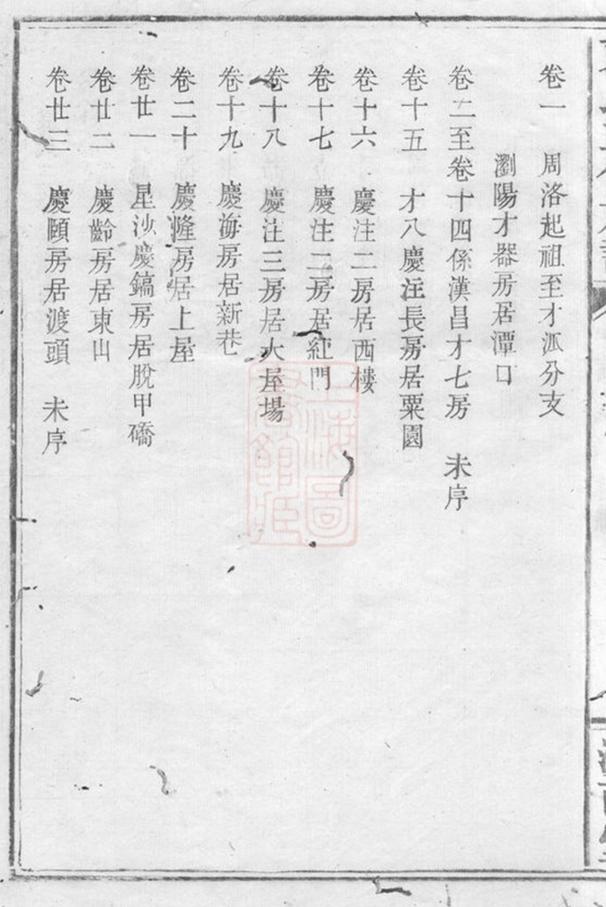 卷一 周洛起祖至才派分支
瀏陽才器房居潭口
卷二至卷十四係漢昌才七房 未序
卷十五 才八慶注長房居粟園
卷十六 慶注二房居西樓
卷十七 慶注二房居紅門
卷十八 慶注三房居大屋場
卷十九 慶海房居新巷
卷二十 慶隆房居上屋
卷廿一 星沙慶鎬房居脫甲礄
卷廿二 慶齡房居東山
卷廿三 慶頤房居渡頭 未序
上海圖書館藏